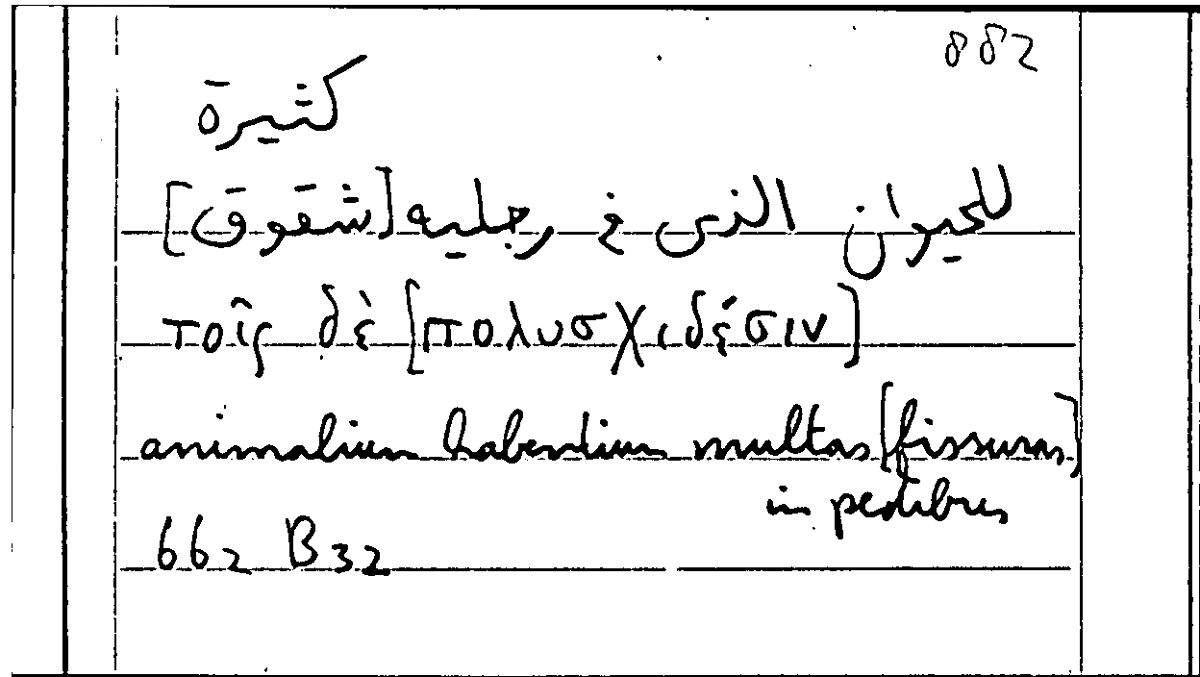 882
كثيرة
للحيوان الذى فى رجليه [شقوق]
τοῖς δὲ [πολυσχιδέσιν]
animalium habentium multas [fissuras]
in pedibus
662 B32